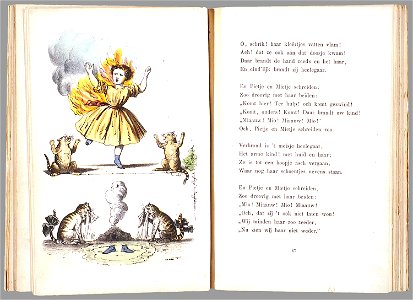 O, schrik! haar kleertjes vatten vlam!
Ach! dat ze ook aan dat doosje kwam!
Daar brandt de hand reeds en het haar,
En eind'lijk brandt zij heelegaar.
En Pietje en Mietje schreiden,
Zoo droevig met haar beiden:
„Komt hier! Ter hulp! och komt gezwind!
„Komt, ouders! Komt! Daar brandt uw kind!
„Miauw! Mio! Miauw! Mio!"
Och, Pietje en Mietje schreiden zoo
Verbrand is 't meisje heelegaar,
Het arme kind! met huid en haar:
Ze is tot een hoopje asch vergaan,
Waar nog haar schoentjes nevens staan.
En Pietje en Mietje schreiden,
Zoo droevig met haar beiden:
„Mio! Miauw! Mio! Miauw!
„Och, dat zij 't ook niet laten wou!
„Wij minden haar zoo teeder,
„Nu zien wij haar niet weder."